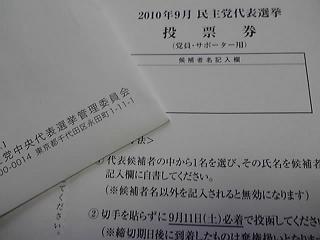 2010年9月 民主党代表選挙
投票券
(党員・サポーター用)
候補者名記入欄
党中央代表選挙管理委員会
00-0014 東京都千代田区永田町1-11-1
法>
①代表候補者の中から1名を選び、その氏名を候補者
記入欄に自書してください。
(※候補者名以外を記入されると無効になります)
②切手を貼らずに9月11日(土)必着で投函してください
(※締切期日後に到着したものは棄権扱いとな